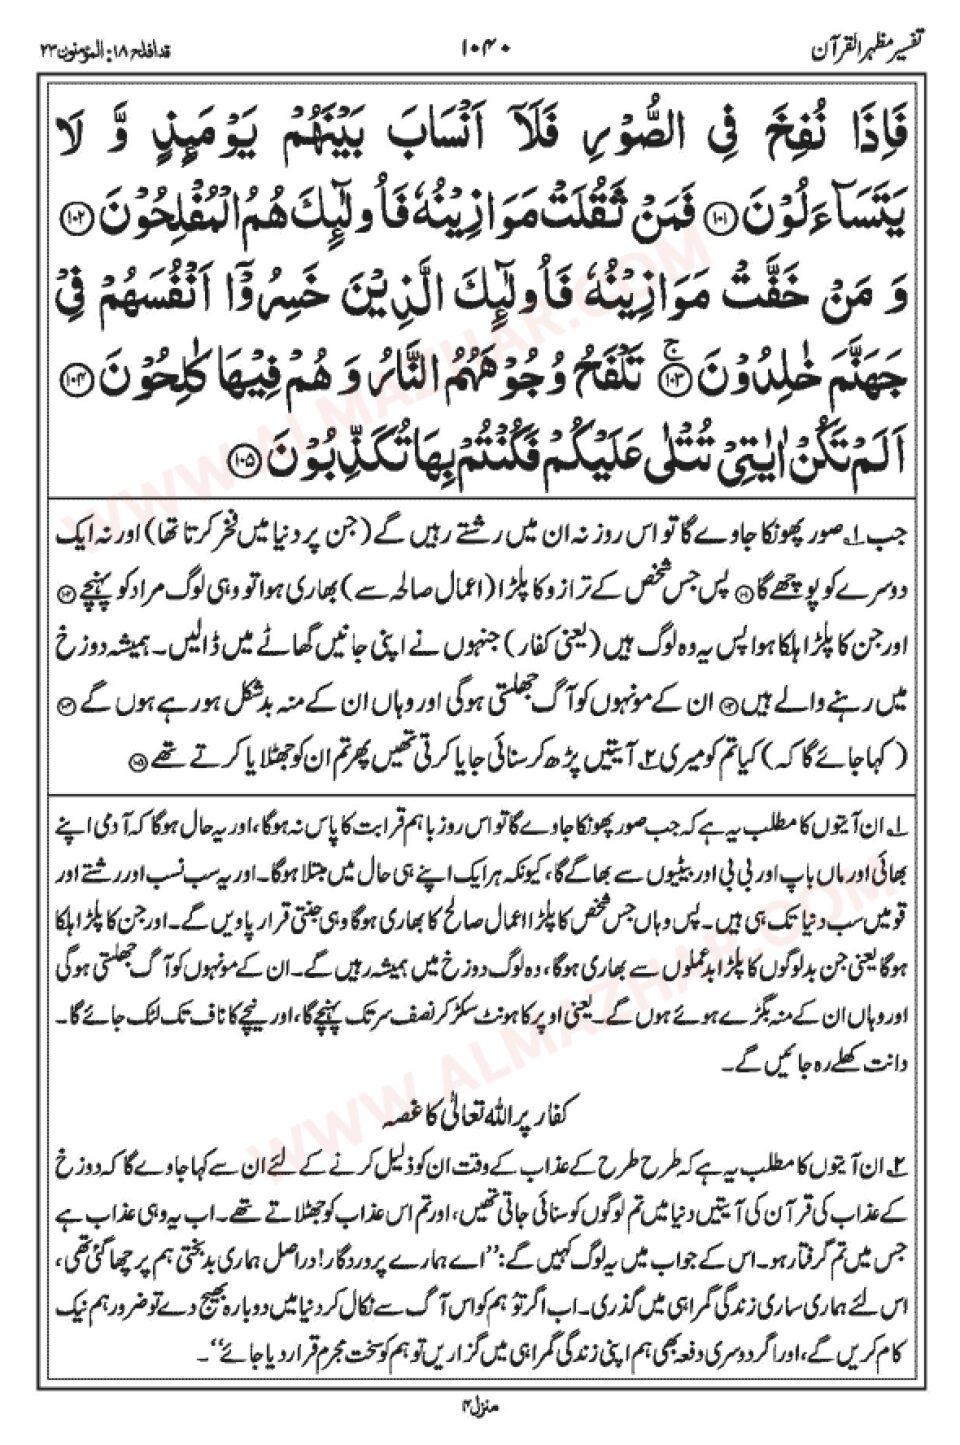 تفسیر مظہر القرآن
۱۰۴۰
قد افلح ۱۸: المؤمنون ۲۳
فَاِذَا نُفِخَ فِی الصُّوْرِ فَلَاۤ اَنْسَابَ بَیْنَهُمْ یَوْمَىِٕذٍ وَّ لَا
یَتَسَآءَلُوْنَ ﴿۱۰۱﴾ فَمَنْ ثَقُلَتْ مَوَازِیْنُهٗ فَاُولٰٓىِٕكَ هُمُ الْمُفْلِحُوْنَ ﴿۱۰۲﴾
وَ مَنْ خَفَّتْ مَوَازِیْنُهٗ فَاُولٰٓىِٕكَ الَّذِیْنَ خَسِرُوْۤا اَنْفُسَهُمْ فِیْ
جَهَنَّمَ خٰلِدُوْنَ ﴿۱۰۳﴾ۚ تَلْفَحُ وُجُوْهَهُمُ النَّارُ وَ هُمْ فِیْهَا كٰلِحُوْنَ ﴿۱۰۴﴾
اَلَمْ تَكُنْ اٰیٰتِیْ تُتْلٰى عَلَیْكُمْ فَكُنْتُمْ بِهَا تُكَذِّبُوْنَ ﴿۱۰۵﴾
جب ۱؎ صور پھونکا جاوے گا تو اس روز نہ ان میں رشتے رہیں گے (جن پر دنیا میں فخر کرتا تھا) اور نہ ایک
دوسرے کو پوچھے گا ﴿۱۰۱﴾ پس جس شخص کے ترازو کا پلڑا (اعمال صالحہ سے) بھاری ہوا تو وہی لوگ مراد کو پہنچے ﴿۱۰۲﴾
اور جن کا پلڑا ہلکا ہوا پس یہ وہ لوگ ہیں (یعنی کفار) جنہوں نے اپنی جانیں گھاٹے میں ڈالیں۔ ہمیشہ دوزخ
میں رہنے والے ہیں ﴿۱۰۳﴾ ان کے مونہوں کو آگ جھلستی ہوگی اور وہاں ان کے منہ بدشکل ہو رہے ہوں گے ﴿۱۰۴﴾
(کہا جائے گا کہ) کیا تم کو میری ۲؎ آیتیں پڑھ کر سنائی جایا کرتی تھیں پھر تم ان کو جھٹلایا کرتے تھے ﴿۱۰۵﴾
۱؎ ان آیتوں کا مطلب یہ ہے کہ جب صور پھونکا جاوے گا تو اس روز باہم قرابت کا پاس نہ ہوگا، اور یہ حال ہوگا کہ آدمی اپنے
بھائی اور ماں باپ اور بی بی اور بیٹیوں سے بھاگے گا، کیونکہ ہر ایک اپنے ہی حال میں مبتلا ہوگا۔ اور یہ سب نسب اور رشتے اور
قومیں سب دنیا تک ہی ہیں۔ پس وہاں جس شخص کا پلڑا اعمال صالح کا بھاری ہوگا وہی جنتی قرار پاویں گے۔ اور جن کا پلڑا ہلکا
ہوگا یعنی جن بد لوگوں کا پلڑا بدعملوں سے بھاری ہوگا، وہ لوگ دوزخ میں ہمیشہ رہیں گے۔ ان کے مونہوں کو آگ جھلستی ہوگی
اور وہاں ان کے منہ بگڑے ہوئے ہوں گے۔ یعنی اوپر کا ہونٹ سکڑ کر نصف سر تک پہنچے گا، اور نیچے کا ناف تک لٹک جائے گا۔
دانت کھلے رہ جائیں گے۔
کفار پر اللہ تعالیٰ کا غصہ
۲؎ ان آیتوں کا مطلب یہ ہے کہ طرح طرح کے عذاب کے وقت ان کو ذلیل کرنے کے لئے ان سے کہا جاوے گا کہ دوزخ
کے عذاب کی قرآن کی آیتیں دنیا میں تم لوگوں کو سنائی جاتی تھیں، اور تم اس عذاب کو جھٹلاتے تھے۔ اب یہ وہی عذاب ہے
جس میں تم گرفتار ہو۔ اس کے جواب میں یہ لوگ کہیں گے: ‘‘اے ہمارے پروردگار! دراصل ہماری بدبختی ہم پر چھا گئی تھی،
اس لئے ہماری ساری زندگی گمراہی میں گذری۔ اب اگر تو ہم کو اس آگ سے نکال کر دنیا میں دوبارہ بھیج دے تو ضرور ہم نیک
کام کریں گے، اور اگر دوسری دفعہ بھی ہم اپنی زندگی گمراہی میں گزاریں تو ہم کو سخت مجرم قرار دیا جائے’’۔
منزل ۴
WWW.ALMAZHAR.COM
WWW.ALMAZHAR.COM